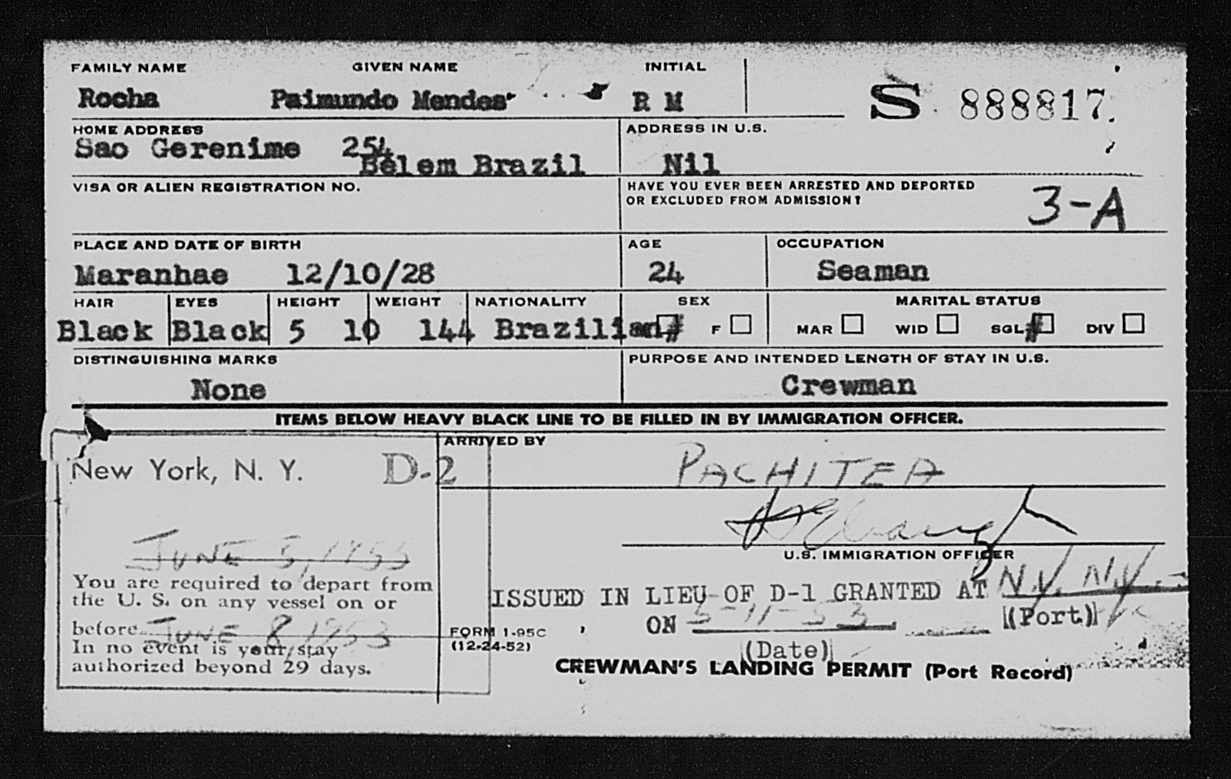 FAMILY NAME GIVEN NAME INITIAL
Rocha Paimundo Mendes R M S 888817
HOME ADDRESS ADDRESS IN U.S.
Sao Gerenime 254
Belem Brazil Nil
VISA OR ALIEN REGISTRATION NO. HAVE YOU EVER BEEN ARRESTED AND DEPORTED
OR EXCLUDED FROM ADMISSION? 3-A
PLACE AND DATE OF BIRTH AGE OCCUPATION
Maranhae 12/10/28 24 Seaman
HAIR EYES HEIGHT WEIGHT NATIONALITY SEX MARITAL STATUS
Black Black 5 10 144 Brazilian # F MAR WID SGL # DIV
DISTINGUISHING MARKS PURPOSE AND INTENDED LENGTH OF STAY IN U.S.
None Crewman
ITEMS BELOW HEAVY BLACK LINE TO BE FILLED IN BY IMMIGRATION OFFICER.
ARRIVED BY
New York, N. Y. D-2 PACHITEA
U.S. IMMIGRATION OFFICER
JUNE 5, 1953
You are required to depart from
the U. S. on any vessel on or
before JUNE 8 1953
In no event is your stay
authorized beyond 29 days.
ISSUED IN LIEU OF D-1 GRANTED AT N.Y. N.Y.
(Port)
ON 5-11-53
(Date)
FORM I-95C
(12-24-52)
CREWMAN'S LANDING PERMIT (Port Record)